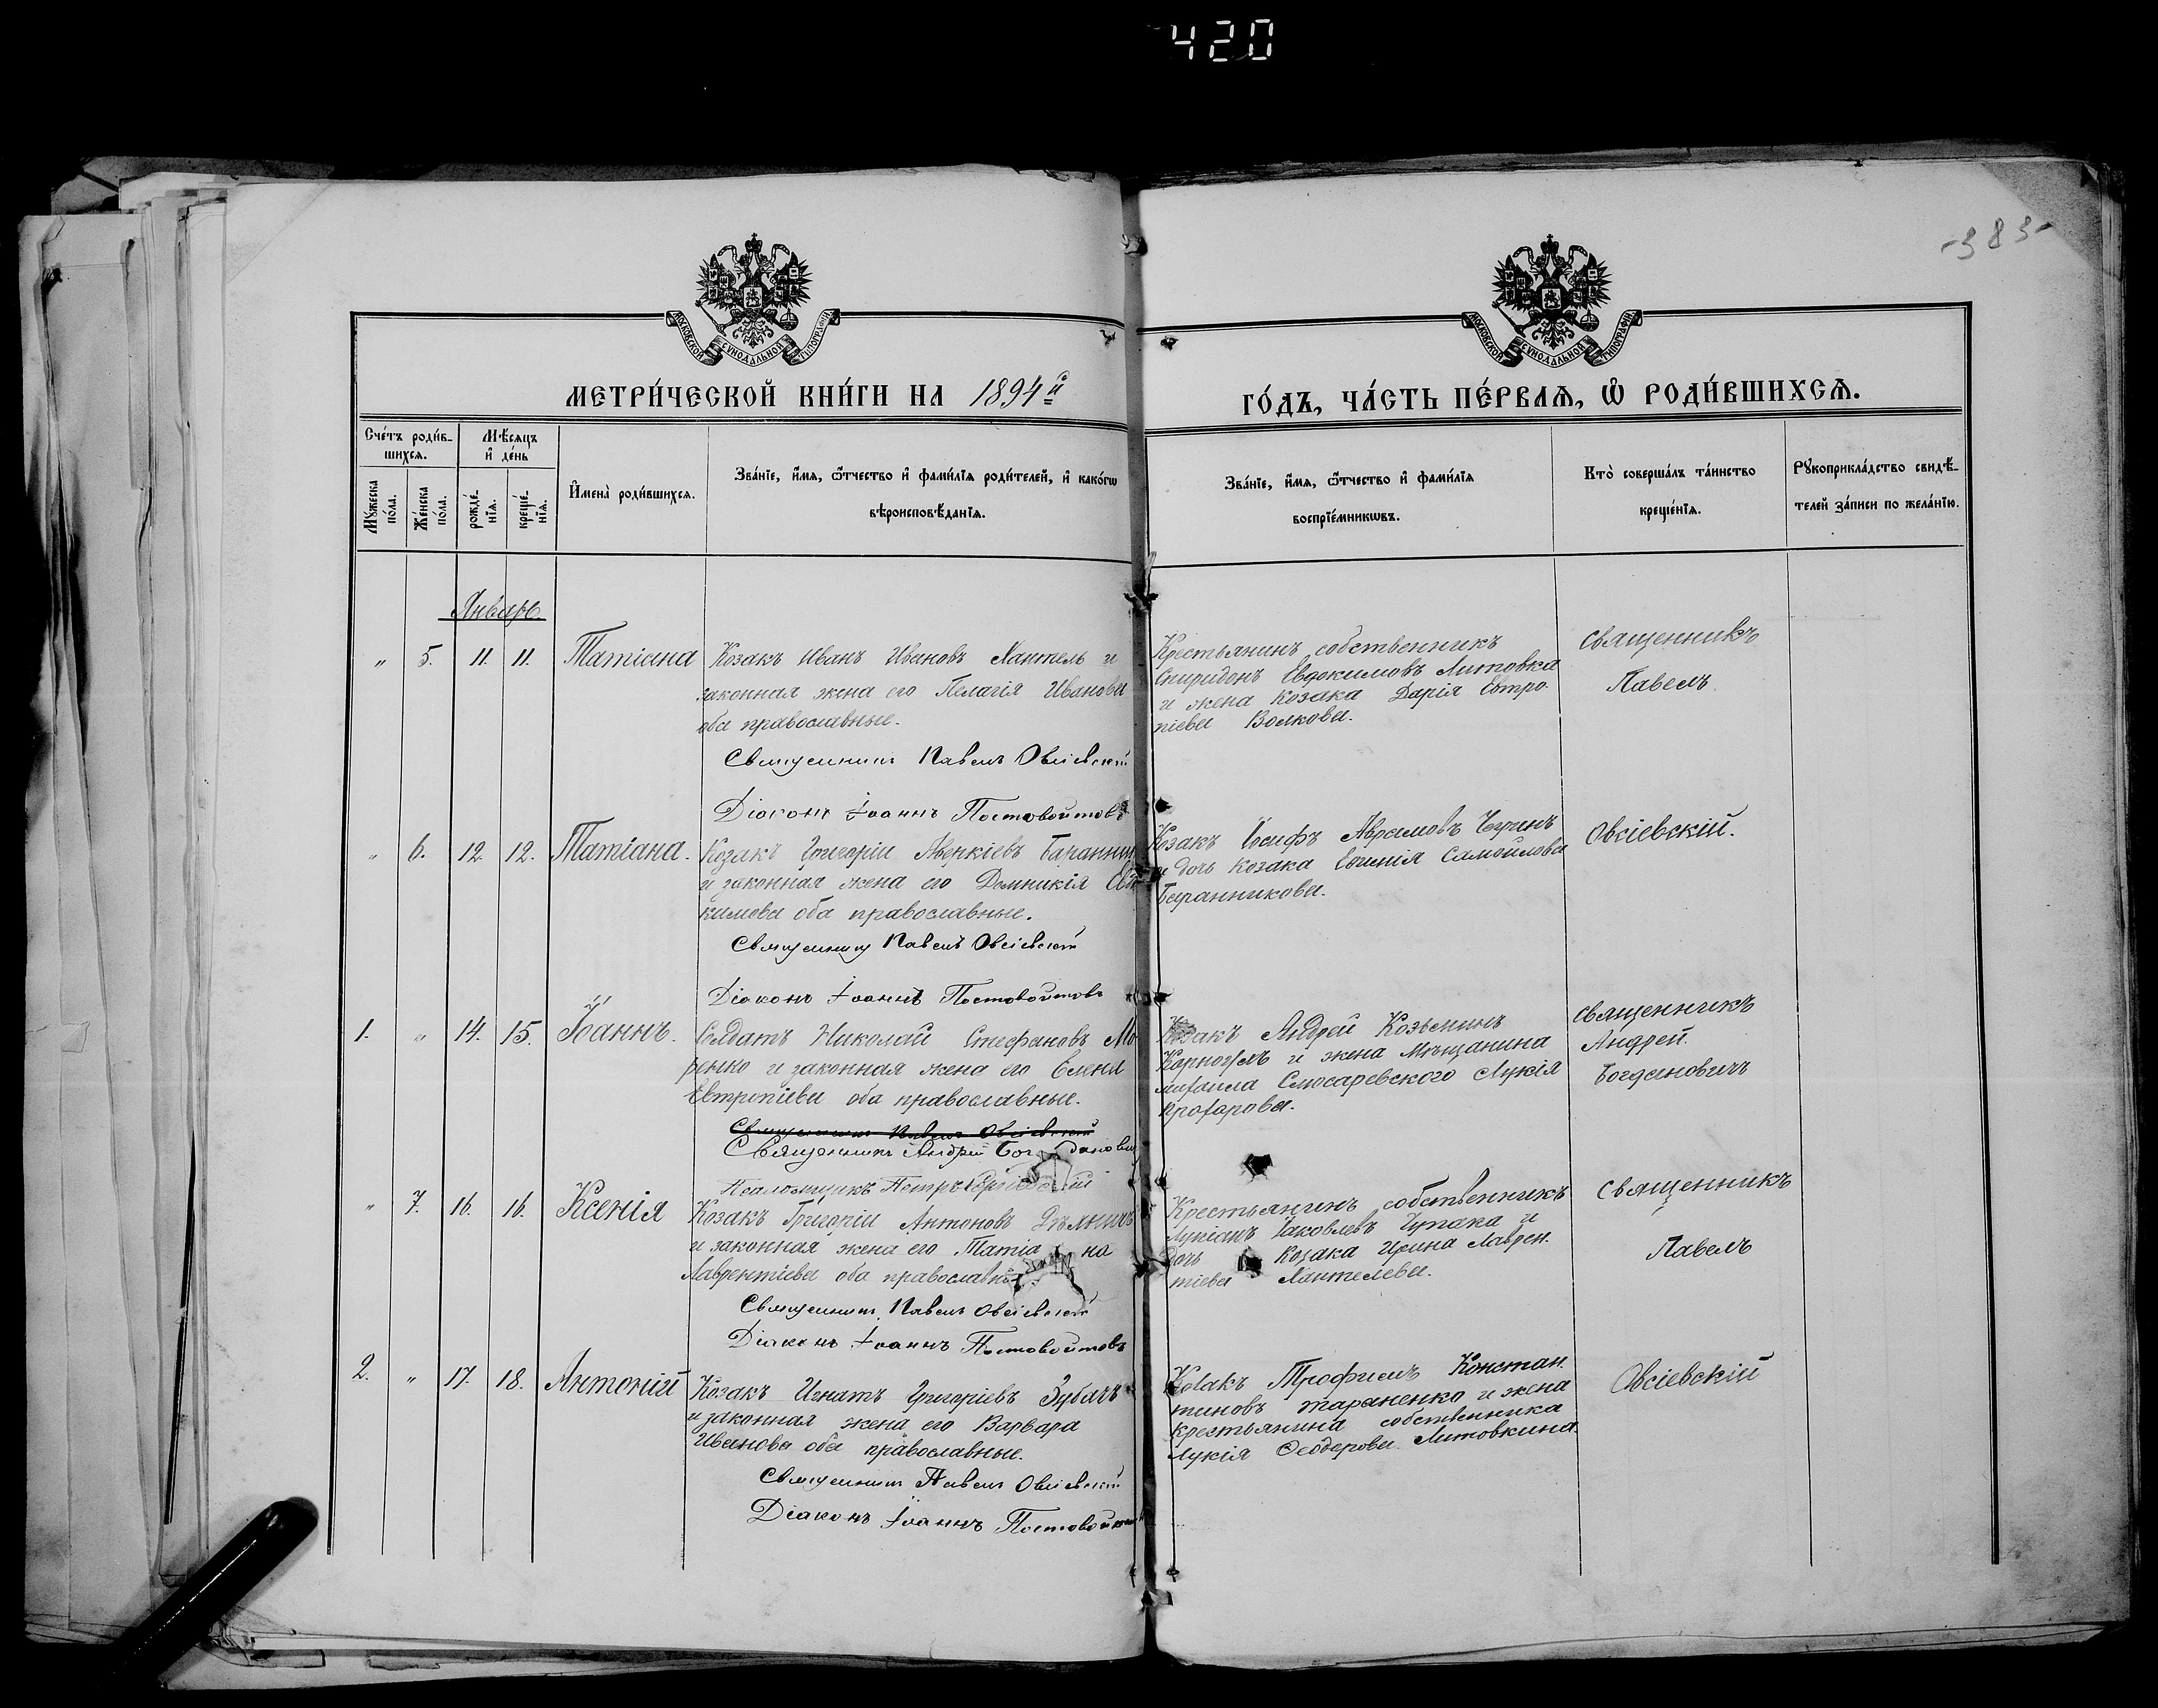 420
-383-
МОСКОВСКОЙ СѴНОДАЛЬНОЙ ТИПОГРАФІИ
МОСКОВСКОЙ СѴНОДАЛЬНОЙ ТИПОГРАФІИ
МЕТРИ́ЧЕСКОЙ КНИ́ГИ НА 1894й
ГО́ДЪ, ЧА́СТЬ ПЕ́РВАѦ, Ѡ҆ РОДИ́ВШИХСѦ.
Сче́тъ роди́в-
шихсѧ.
Мѣ́сѧцъ
и҆ де́нь
Мꙋ́жеска
по́ла.
Же́нска
по́ла.
рожде́-
нїѧ.
креще́-
нїѧ.
И҆мена̀ роди́вшихсѧ.
Зва́нїе, и҆́мѧ, ѻ҆́тчество и҆ фами́лїѧ роди́телей, и҆ како́гѡ
вѣроисповѣ́данїѧ.
Зва́нїе, и҆́мѧ, ѻ҆́тчество и҆ фами́лїѧ
воспрїе́мникѡвъ.
Кто̀ соверша́лъ та́инство
креще́нїѧ.
Рꙋкоприкла́дство свидѣ́-
телей за́писи по жела́нїю.
Январь
" 5. 11. 11. Татіана
Козакъ Иванъ Ивановъ Хантель и
законная жена его Пелагія Иванова
оба православные.
Священникъ Павелъ Овсіевскій
Діаконъ Іоаннъ Постовойтовъ
Крестьянинъ собственникъ
Спиридонъ Евдокимовъ Литовка
и жена козака Дарія Евтро-
піева Волкова.
Священникъ
Павелъ
" 6. 12. 12. Татіана.
Козакъ Григорій Аверкіевъ Баранник
и законная жена его Домникія Евд
кимова оба православные.
Священникъ Павелъ Овсіевскій
Діаконъ Іоаннъ Постовойтовъ
Козакъ Іосифъ Аврамовъ
и дочь козака Евфимія Самойлова
Баранникова.
Овсіевскій.
1. " 14. 15. Іоаннъ.
Солдатъ Николай Стефановъ Мо
ренко и законная жена его Елена
Евтропіева оба православные.
Священникъ Павелъ Овсіевскій
Священникъ Андрей Богдановичъ
Псаломщикъ Петръ
Козакъ Андрей Козьминъ
и жена Мѣщанина
Михаила Слюсаревского Лукія
Прохорова.
Священникъ
Андрей.
Богдановичъ
" 7. 16. 16. Ксенія
Козакъ Григорій Антоновъ
и законная жена его Татіана
Лаврентіева оба православные.
Священникъ Павелъ Овсіевскій
Діаконъ Іоаннъ Постовойтовъ
Крестьянинъ собственникъ
Лукіанъ Іаковлевъ Чупака и
дочь козака Ирина Лаврен-
тіева Хантелева.
Священникъ
Павелъ
2. " 17. 18. Антоній
Козакъ Игнатъ Григоріевъ Зубачъ
и законная жена его Варвара
Иванова оба православные.
Священникъ Павелъ Овсіевскій
Діаконъ Іоаннъ Постовойтовъ
Козакъ Трофимъ Констан-
тиновъ Тараненко и жена
крестьянина собственника
Лукія Феодорова Литовкина.
Овсіевскій